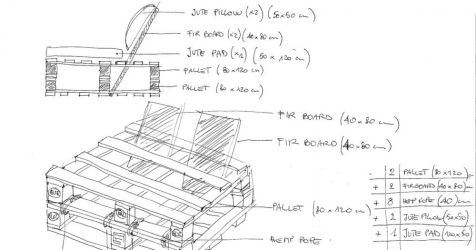 JUTE PILLOW (x2) (50x50 cm)
FIR BOARD (x2) (40x80 cm)
JUTE PAD (x1) (50 x 120 cm)
PALLET (80x120 cm)
PALLET (80 x 120 cm)
FIR BOARD (40x80 cm)
FIR BOARD (40x80 cm)
PALLET (80x120 cm)
HEMP ROPE
2 PALLET (80x120)
+ 2 FIR BOARD (40x80 cm)
+ 8 HEMP ROPE (40 cm)
+ 2 JUTE PILLOW (50x50)
+ 1 JUTE PAD (120x50)